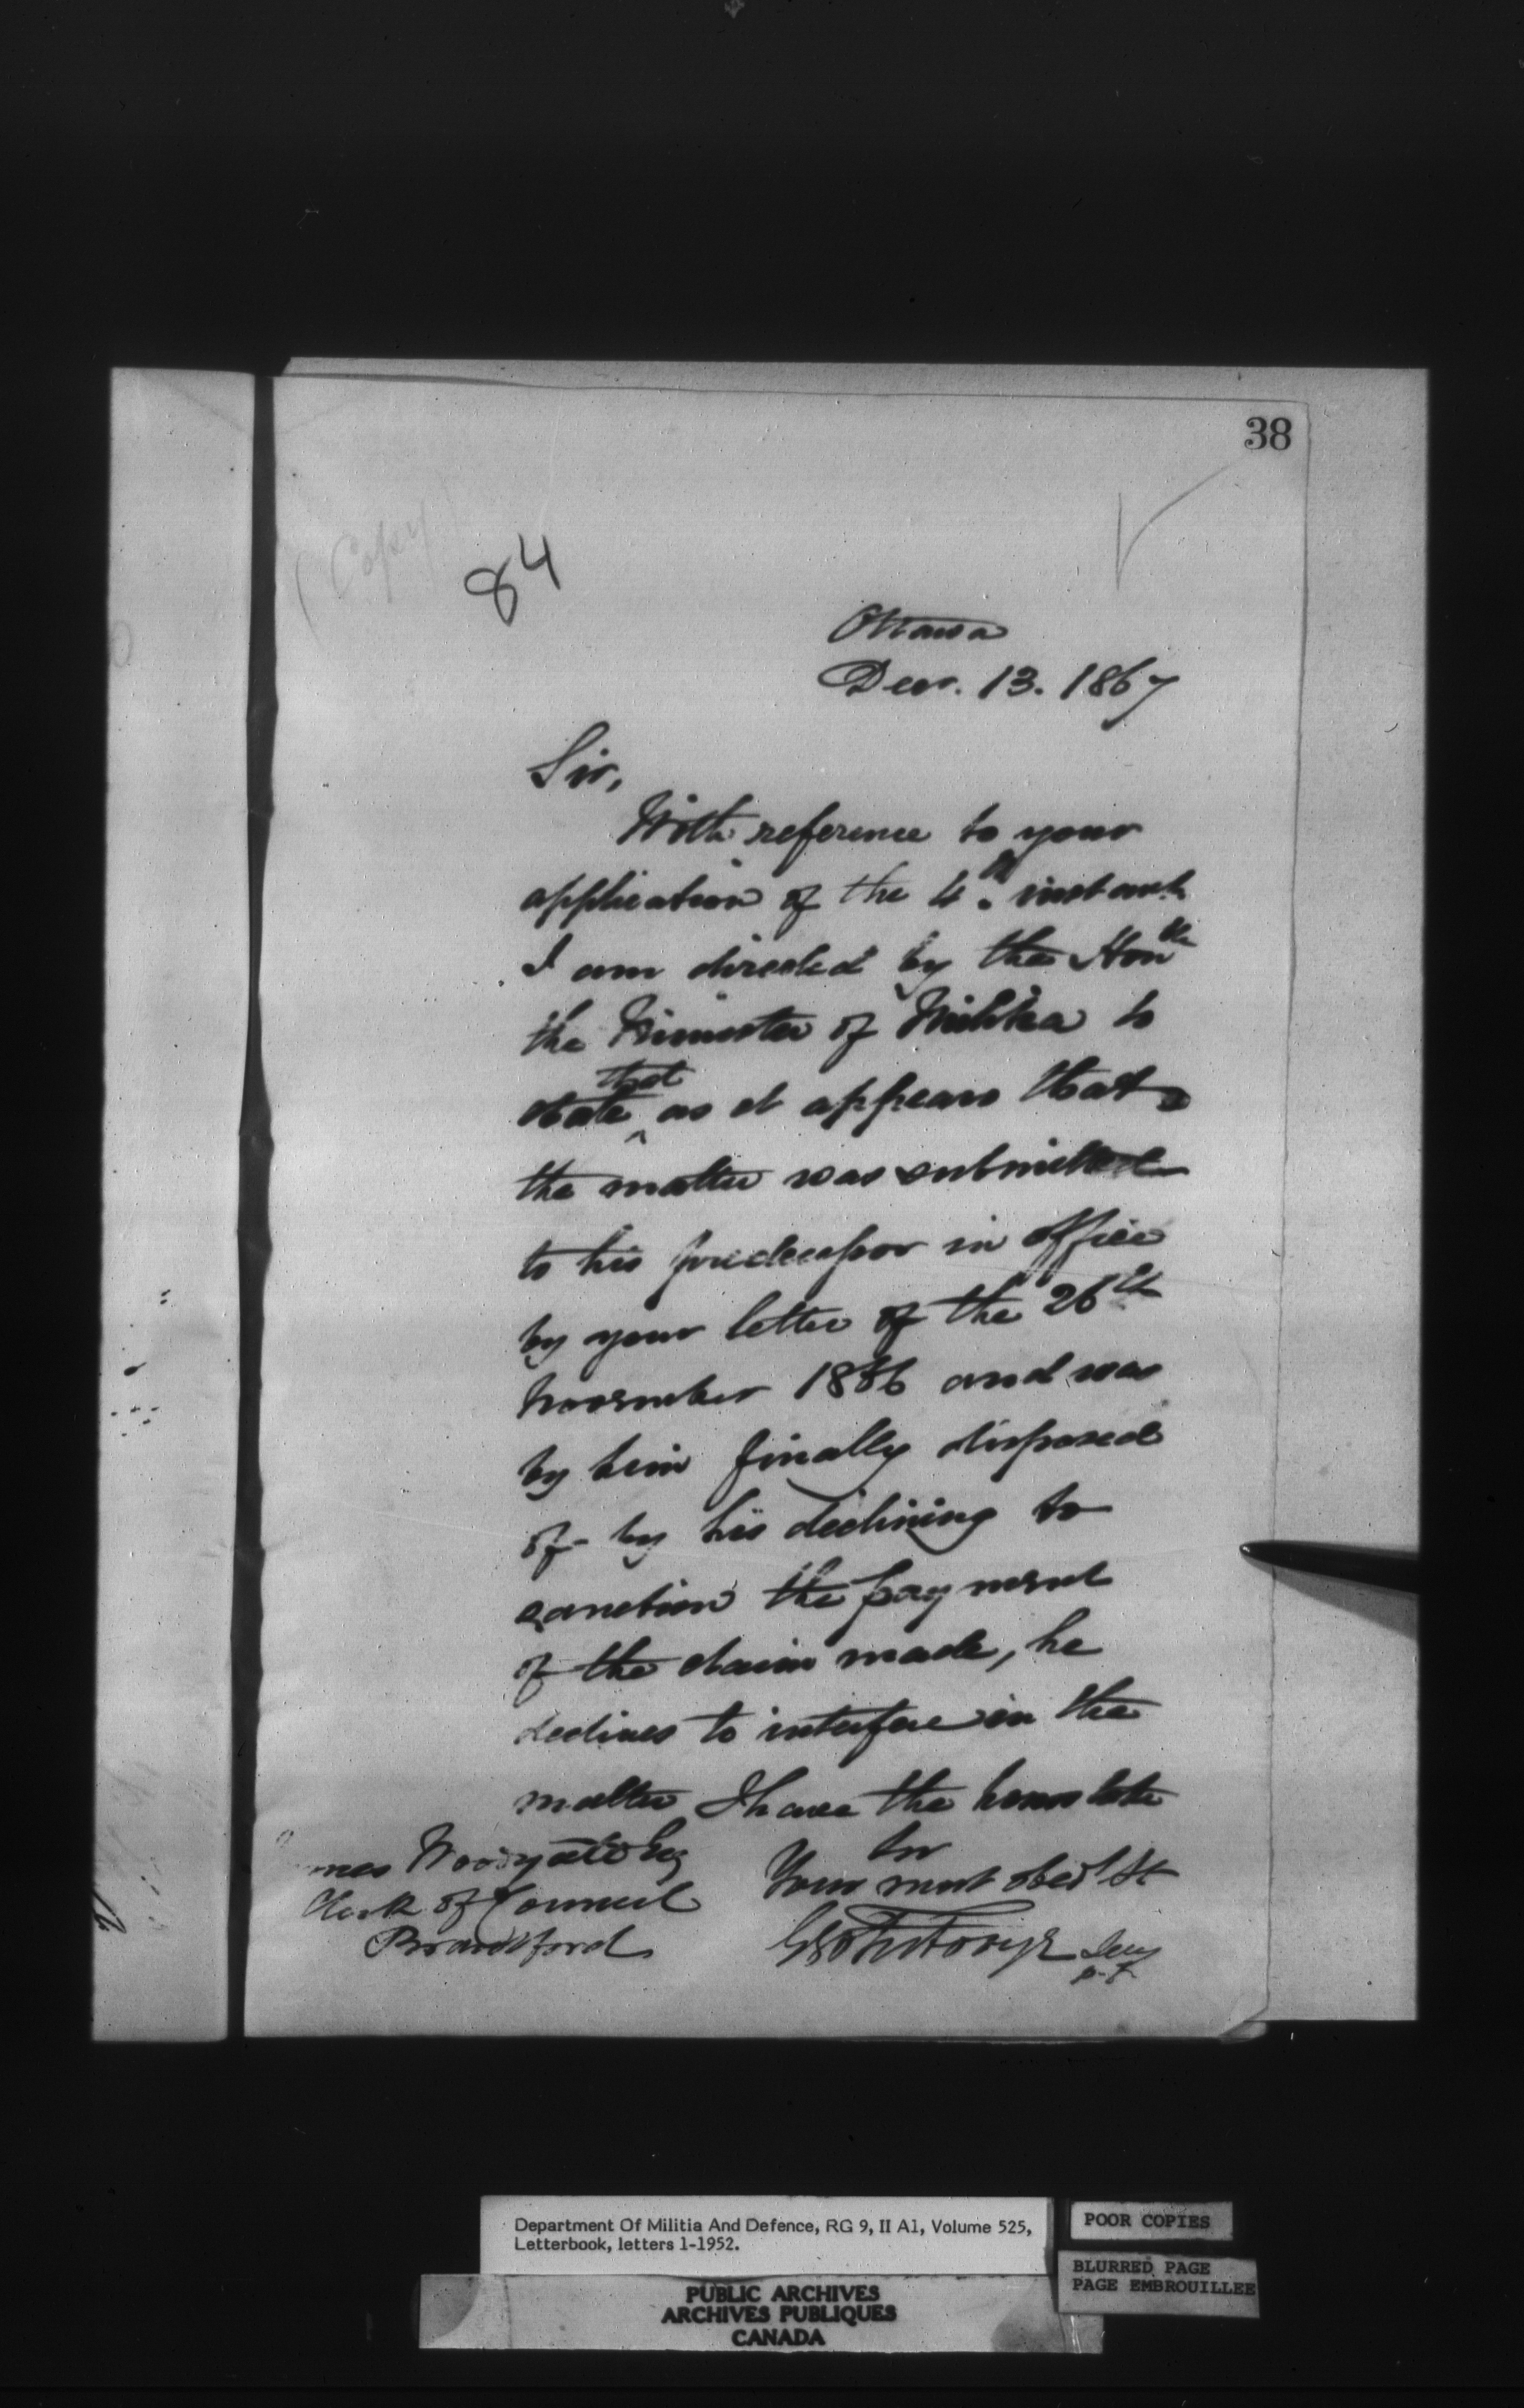 38
(Copy)
84
Ottawa
Decr. 13. 1867
Sir,
With reference to your
application of the 4th instant
I am directed by the Honble
the Minister of Militia to
state that as it appears that
the matter was submitted
to his predecessor in office
by your letter of the 26th
November 1866 and was
by him finally disposed
of by his declining to
sanction the payment
of the claim made, he
declines to interfere in the
matter I have the honor to be
Sir
Your most obedt St
Geo Futvoye
James Woodyatt Esq
Clerk of Council
Brantford
Department Of Militia And Defence, RG 9, II A1, Volume 525,
Letterbook, letters 1-1952.
POOR COPIES
BLURRED PAGE
PAGE EMBROUILLEE
PUBLIC ARCHIVES
ARCHIVES PUBLIQUES
CANADA